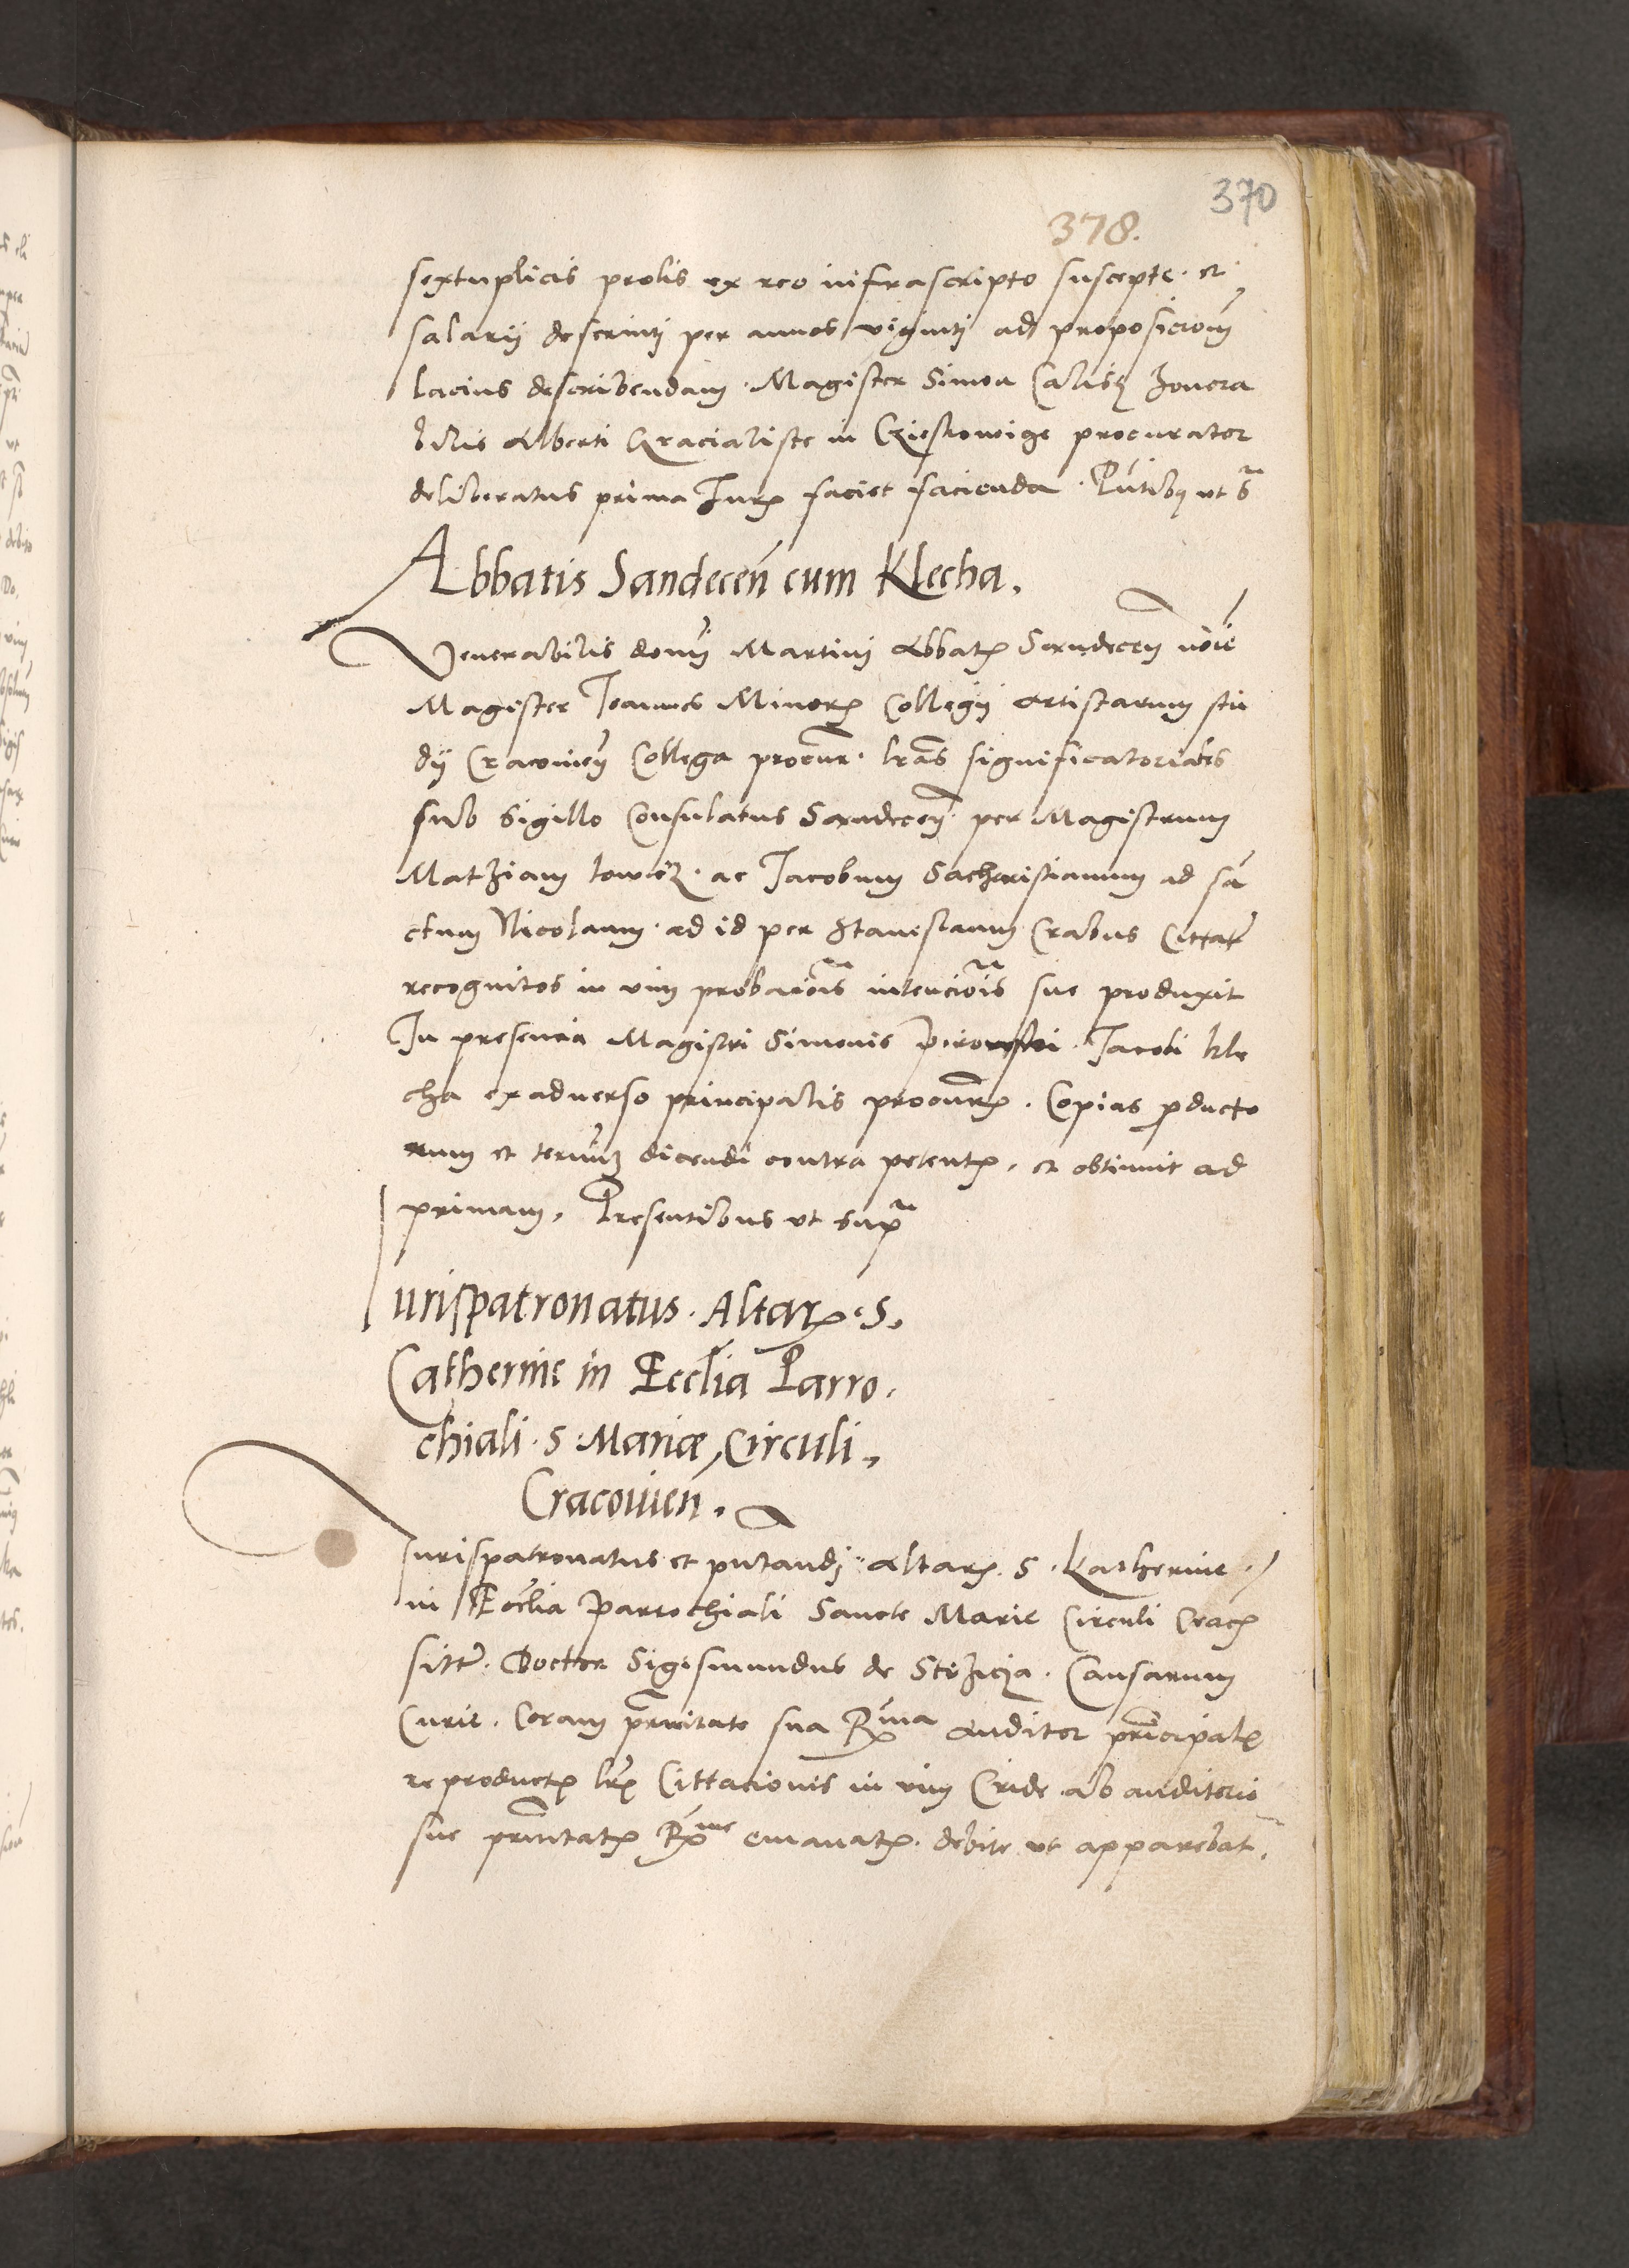 370
378.
sextuplicis prolis ex reo infrascripto suscepte. et
salarii deserviti per annos viginti ad proposicionem
lacius describendam. Magister Simon honora
bilis Alberti Gracialiste in procurator
deliberatus prima Juris faciet facienda. Pntibus ut sa
Abbatis Sandecen cum Klecha.
Venerabilis domini Martini Abbatis Sandecen noie
Magister Joannes Minoris Collegii Artistarum stu
dii Cracovien Collega procur. lras significatoriales
sub Sigillo Consulatus Sandecen per Magistrum
Mathiam Lowicz. ac Jacobum Sacharistianum ad san
ctum Nicolaum. ad id per Stanislaum Crabus Cittat
recognitos in vim probacois intenciois sue produxit
In presencia Magistri Simonis Jacobi Kle
cha ex adverso principalis procuris. Copias producto
rum et terminum dicendi contra petentis. et obtinuit ad
primam. Presentibus ut supra
Jurispatronatus. Altaris. S.
Catherine in Ecclia Parro.
chiali. S. Mariæ, Circuli.
Cracovien.
Jurispatronatus et pntandi. Altaris. S. Katherine.
in Ecclia Parrochiali Sancte Marie Circuli Crac
sitte. Doctor Sigismundus de Stezicza. Causarum
Curie. Coram pternitate sua Rma Auditor principalis
reproductis lris Cittacionis in vim Cride ab auditorio
sue pternitatis Rme emanatis. debite ut apparebat.